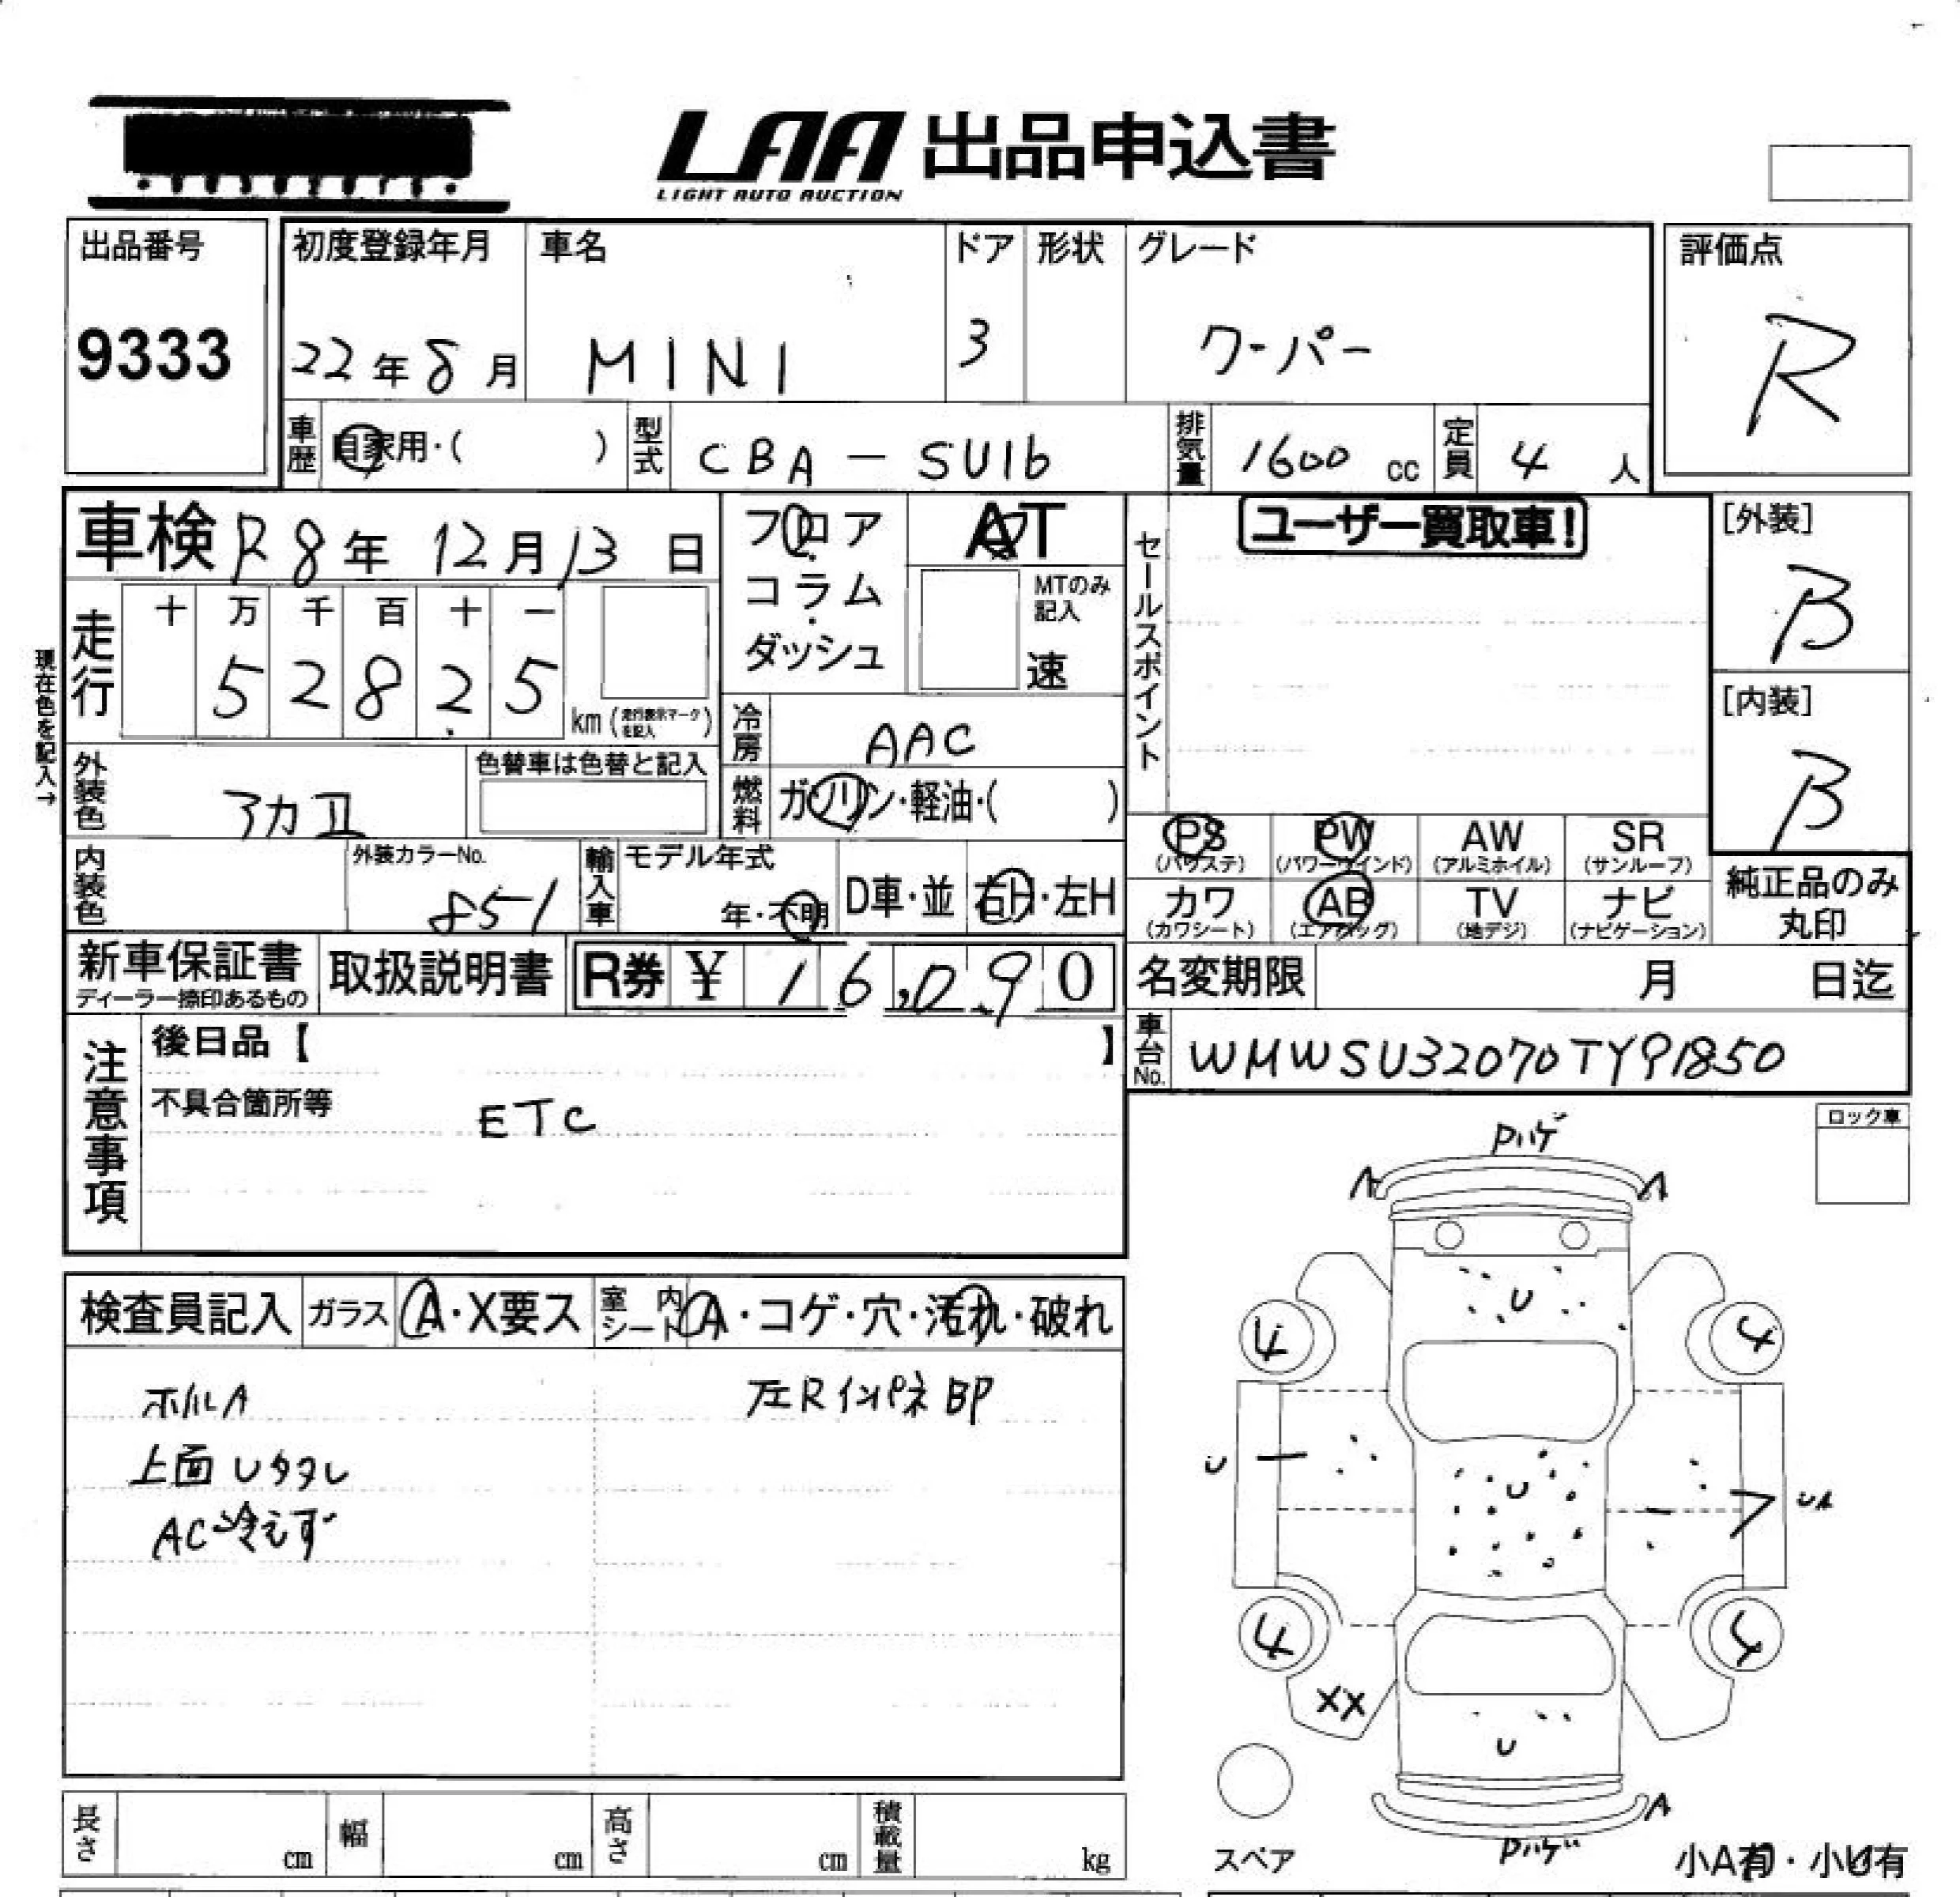 LAA 出品申込書
LIGHT AUTO AUCTION
出品番号
9333
初度登録年月
22年8月
車名
MINI
ドア
3
形状
グレード
クーパー
評価点
R
車歴
自家用・( )
型式
CBA-SU16
排気量
1600 cc
定員
4 人
車検 R8年 12月 13日
フロア・コラム・ダッシュ
AT
MTのみ記入
速
セールスポイント
ユーザー買取車!
[外装]
B
[内装]
B
現在色を記入→
走行
十 万 千 百 十 一
5 2 8 2 5
km (走行表示マークを記入)
冷房
AAC
外装色
アカII
色替車は色替と記入
燃料
ガソリン・軽油・( )
内装色
外装カラーNo.
851
輸入車
モデル年式
年・不明
D車・並
右H・左H
PS (パワステ)
PW (パワーウインド)
AW (アルミホイル)
SR (サンルーフ)
カワ (カワシート)
AB (エアバッグ)
TV (地デジ)
ナビ (ナビゲーション)
純正品のみ丸印
新車保証書
ディーラー捺印あるもの
取扱説明書
R券 ¥ 16,090
名変期限 月 日迄
車台No.
WMWSU32070TY91850
注意事項
後日品【 】
不具合箇所等
ETC
ロック車
検査員記入
ガラス A・X要ス
室内シート A・コゲ・穴・汚れ・破れ
ホイルA
上面Uタタレ
AC冷えず
左RインパネBP
Pハゲ
A A
U
4 4
U U UA
4 4
XX
U
A
Pハゲ
スペア
小A有・小U有
長さ cm
幅 cm
高さ cm
積載量 kg